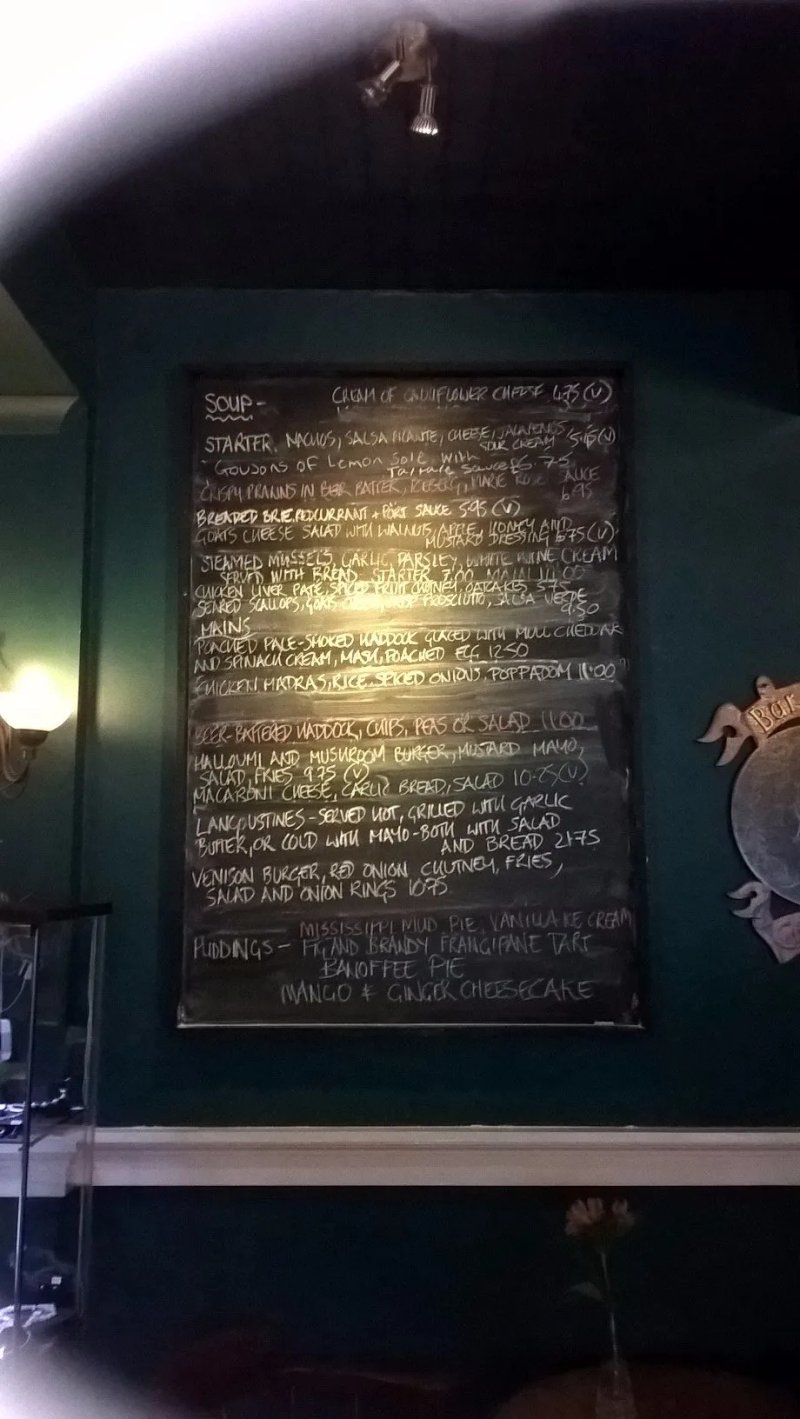 SOUP - CREAM OF CAULIFLOWER CHEESE 4.75 (V)
STARTER. NACHOS, SALSA PICANTE, CHEESE, JALAPENOS
SOUR CREAM (V)
Goujons of Lemon Sole with
Tartare Sauce 6.75
CRISPY PRAWNS IN BEER BATTER, MARIE ROSE SAUCE
6.95
BREADED BRIE, REDCURRANT + PORT SAUCE 5.95 (V)
GOATS CHEESE SALAD WITH WALNUTS, APPLE, HONEY AND
MUSTARD DRESSING 6.75 (V)
STEAMED MUSSELS, GARLIC, PARSLEY, WHITE WINE CREAM
SERVED WITH BREAD. STARTER 7.00
CHICKEN LIVER PATE, SPICED FRUIT CHUTNEY, OATCAKES 5.75
SEARED SCALLOPS, PROSCIUTTO, SALSA VERDE
9.50
MAINS
POACHED PALE-SMOKED HADDOCK GLAZED WITH MULL CHEDDAR
AND SPINACH CREAM, MASH, POACHED EGG 12.50
CHICKEN MADRAS, RICE, SPICED ONIONS, POPPADOM 11.00
BEER-BATTERED HADDOCK, CHIPS, PEAS OR SALAD 11.00
HALLOUMI AND MUSHROOM BURGER, MUSTARD MAYO,
SALAD, FRIES 9.75 (V)
MACARONI CHEESE, GARLIC BREAD, SALAD 10.25 (V)
LANGOUSTINES - SERVED HOT, GRILLED WITH GARLIC
BUTTER, OR COLD WITH MAYO - BOTH WITH SALAD
AND BREAD 21.75
VENISON BURGER, RED ONION CHUTNEY, FRIES,
SALAD AND ONION RINGS 10.75
MISSISSIPPI MUD PIE, VANILLA ICE CREAM
PUDDINGS - FIG AND BRANDY FRANGIPANE TART
BANOFFEE PIE
MANGO & GINGER CHEESECAKE
Bar